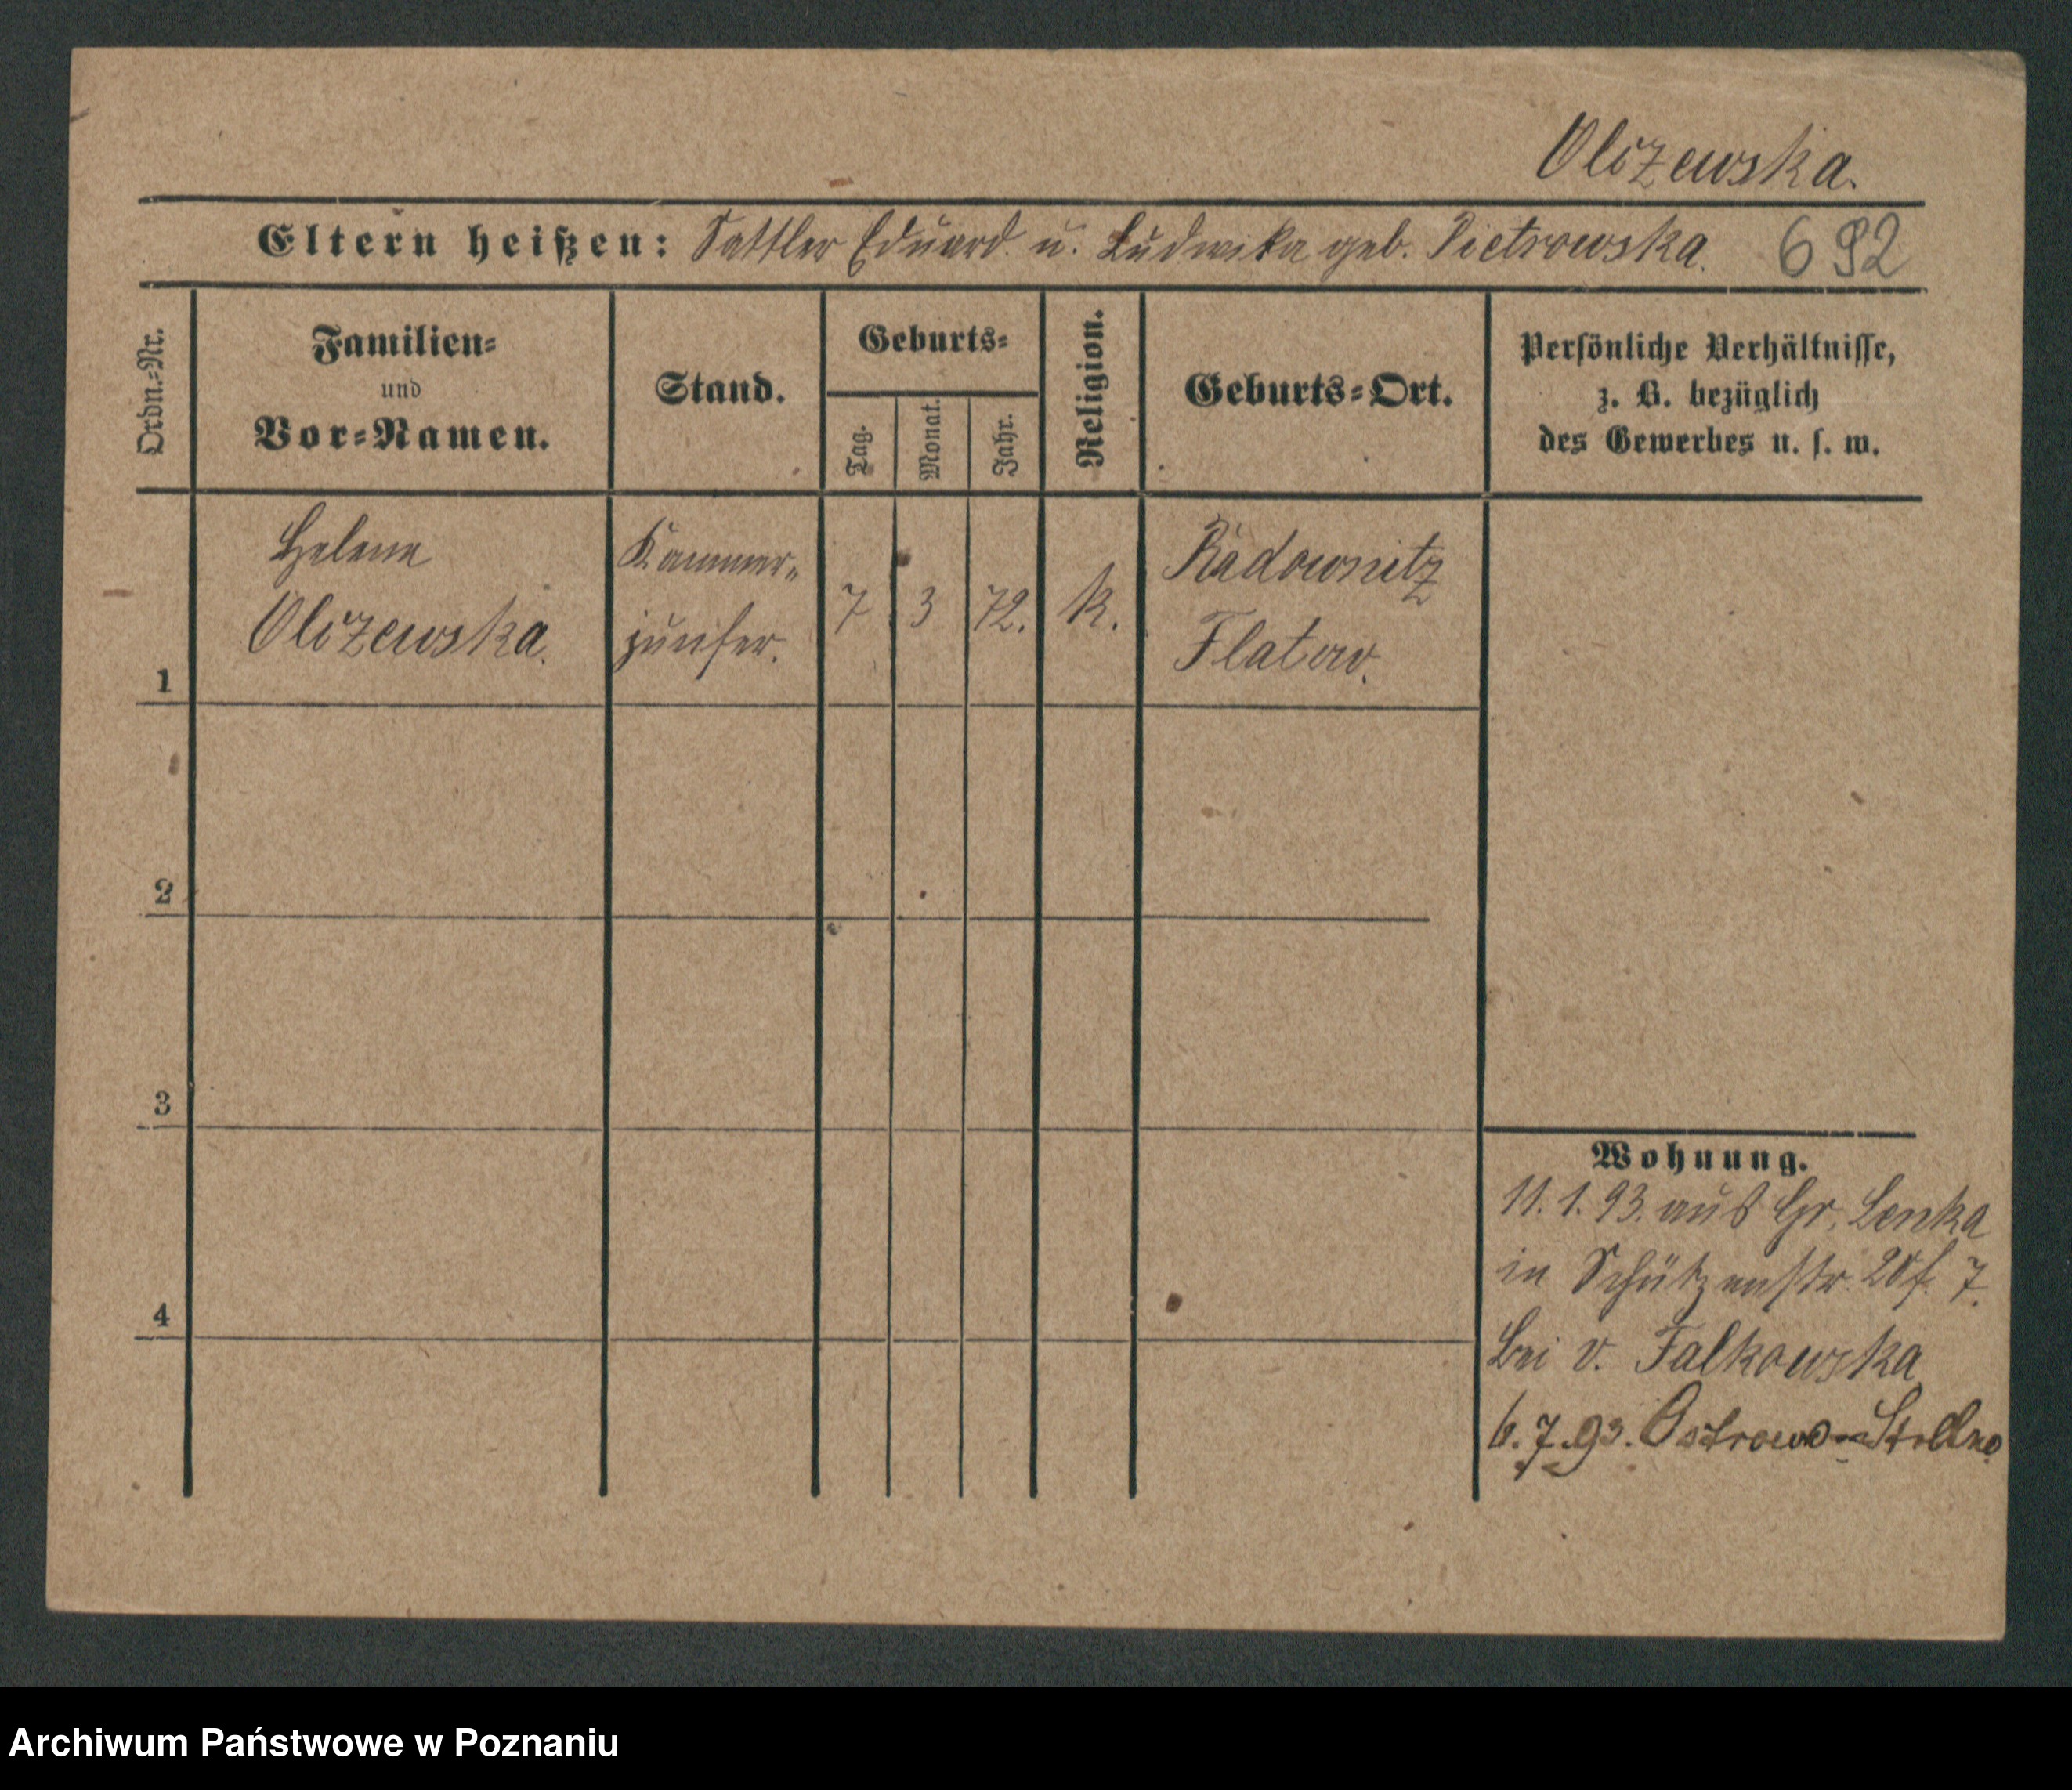 Olszewska.
Eltern heißen: Sattler Eduard u. Ludwika geb. Pietrowska. 692
Ordn.-Nr.
Familien-
und
Vor-Namen.
Stand.
Geburts-
Tag.
Monat.
Jahr.
Religion.
Geburts-Ort.
Persönliche Verhältnisse,
z. B. bezüglich
des Gewerbes u. s. w.
1
Helene
Olszewska.
Kammer-
junfer.
7
3
72.
k.
Radownitz
Flatow.
2
3
4
Wohnung.
11. 1. 93. aus Gr. Lenka
in Schützenstr. 7.
bei v. Falkowska
6. 7. 93. Ostrowo
Archiwum Państwowe w Poznaniu